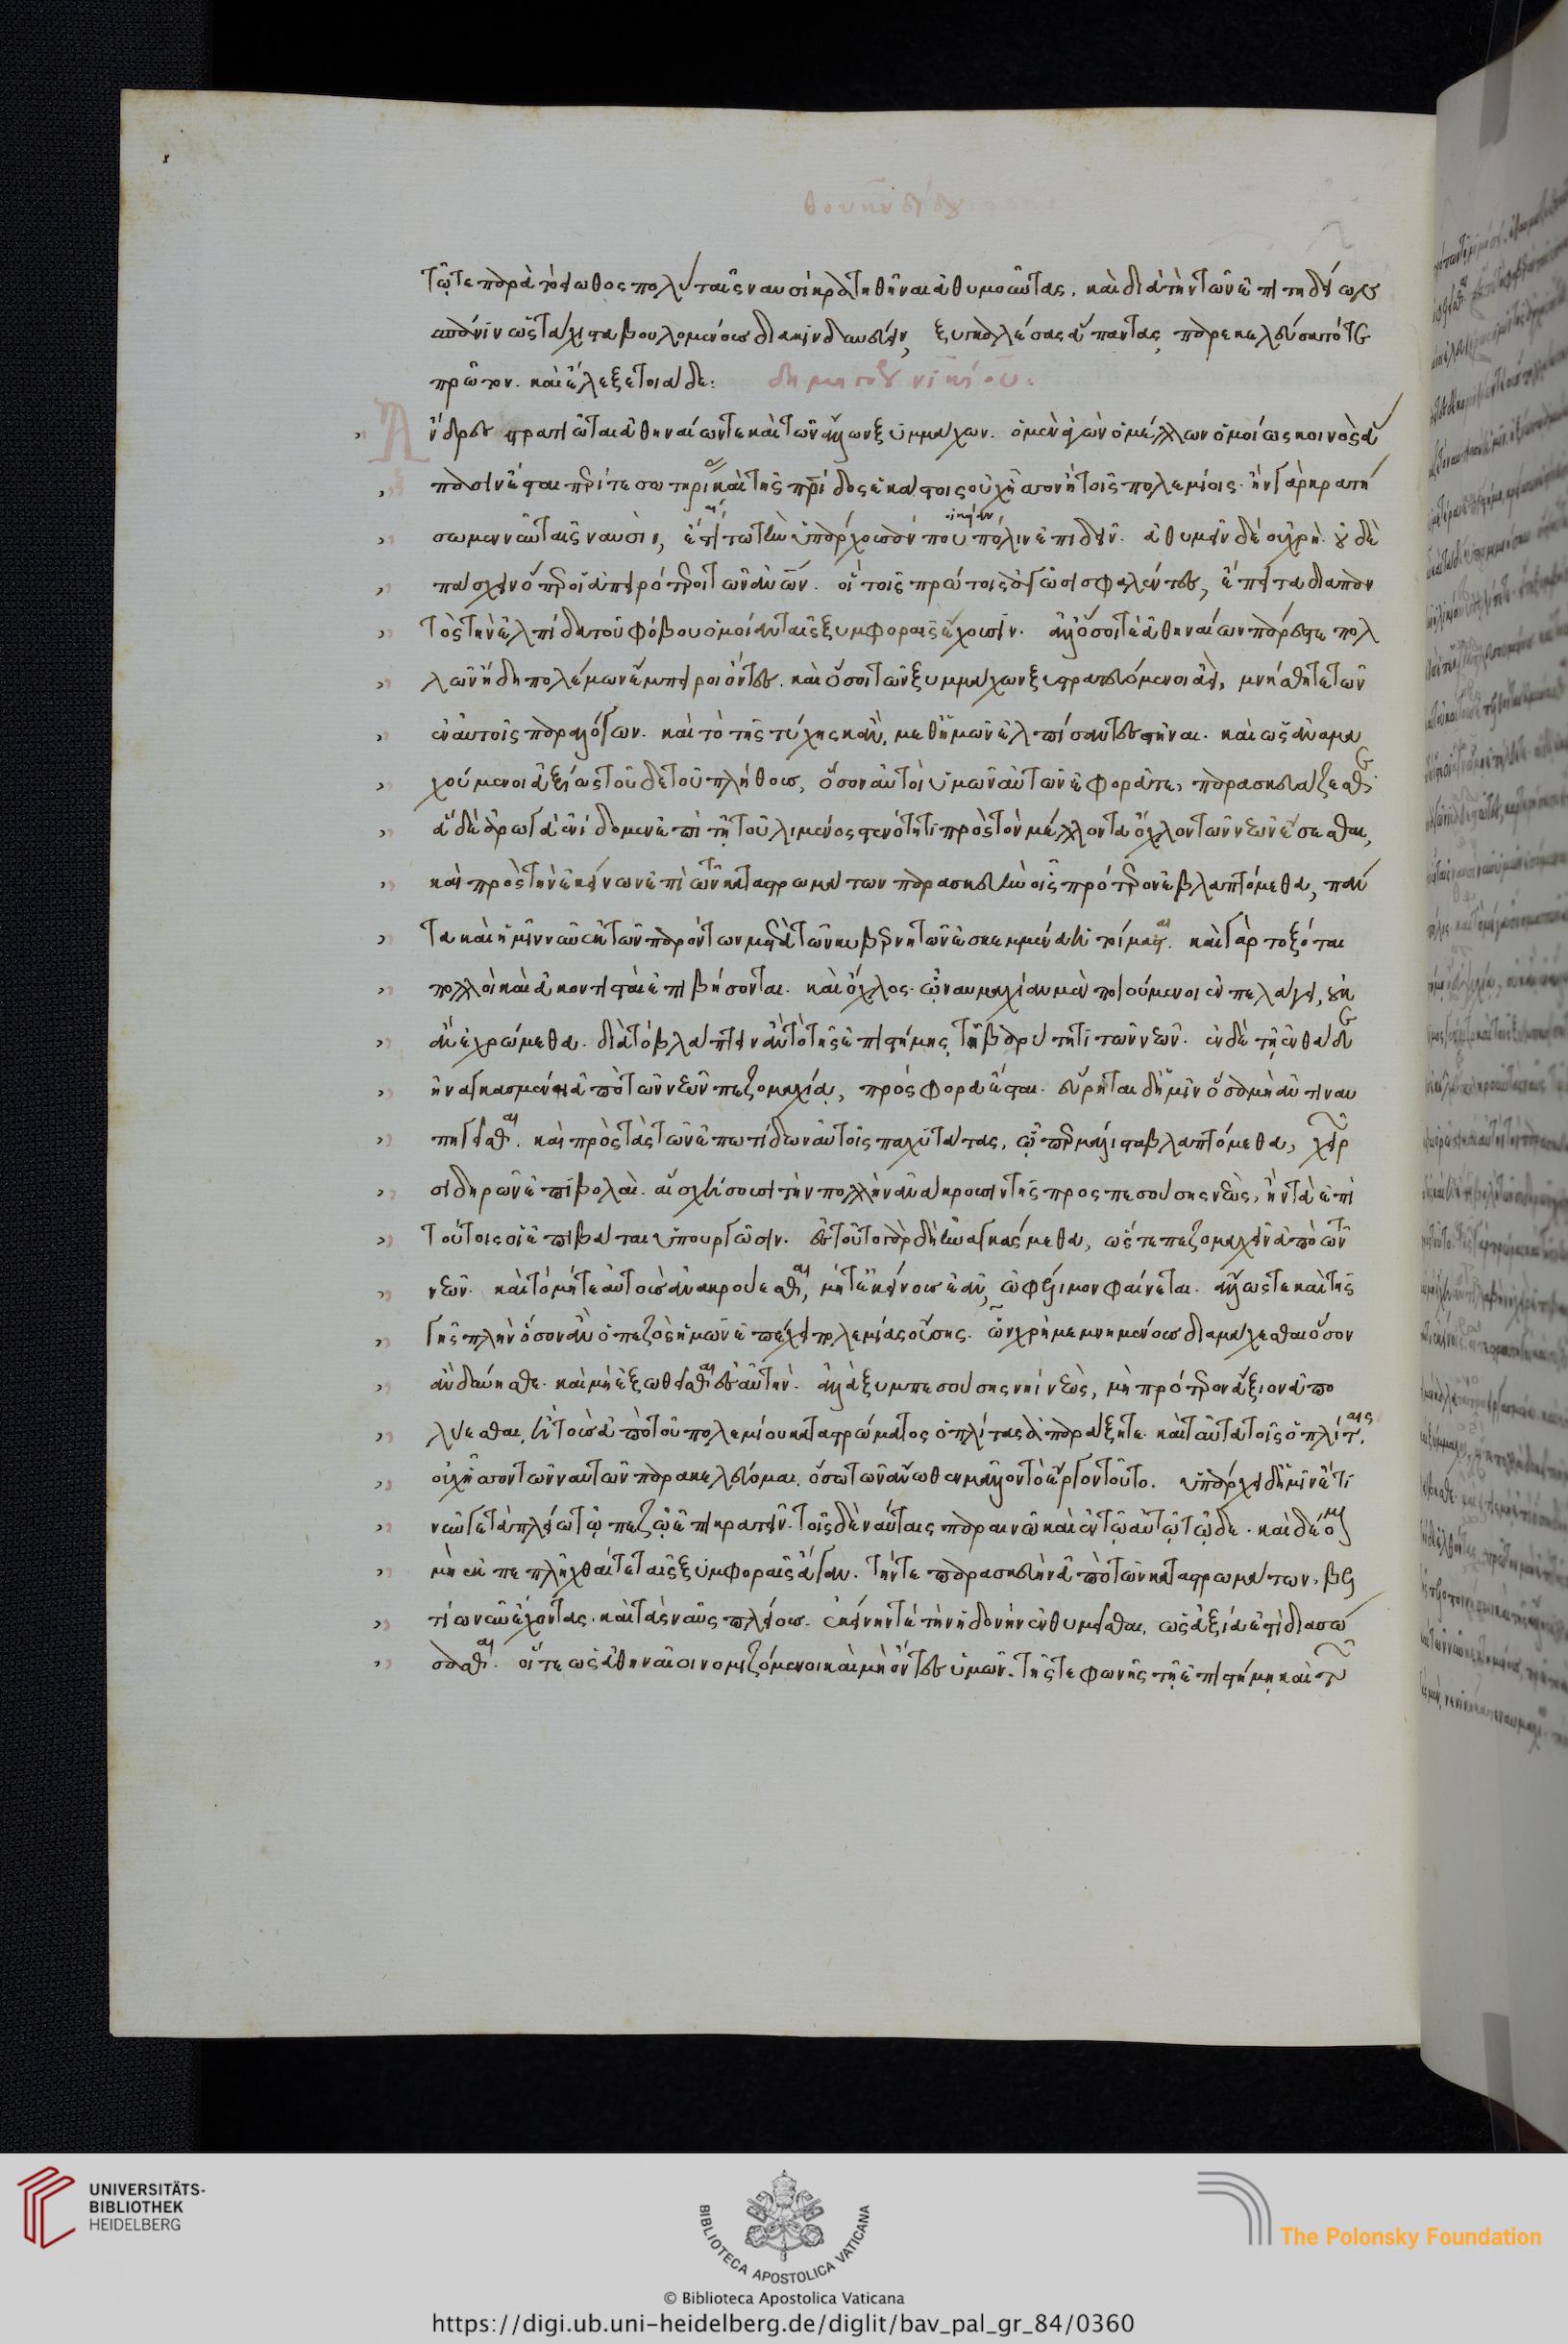 θουκυδίδου
τῷ τε παρὰ τὸ εἰωθὸς πολὺ ταῖς ναυσὶ κρατηθῆναι ἀθυμοῦντας. καὶ διὰ τὴν τῶν ἐπιτηδείων
σπάνιν ὡς τάχιστα βουλομένους διακινδυνεύειν, ξυγκαλέσας ἅπαντας, παρεκελεύσατό τε
πρῶτον. καὶ ἔλεξε τοιάδε: δημηγορία νικίου:
Ἄνδρες στρατιῶται ἀθηναίων τε καὶ τῶν ἄλλων ξυμμάχων. ὁ μὲν ἀγὼν ὁ μέλλων ὁμοίως κοινὸς ἅ
πασιν ἔσται περί τε σωτηρίας καὶ τῆς πατρίδος ἑκάστοις οὐχ ἧσσον ἢ τοῖς πολεμίοις. ἢν γὰρ κρατή
σωμεν νῦν ταῖς ναυσὶν, ἔστι τῳ τὴν ὑπάρχουσάν που οἰκείαν πόλιν ἐπιδεῖν. ἀθυμεῖν δὲ οὐ χρὴ. οὐδὲ
πάσχειν ὅπερ οἱ ἀπειρότατοι τῶν ἀνθρώπων. οἳ τοῖς πρώτοις ἀγῶσι σφαλέντες, ἔπειτα διὰ παν
τὸς τὴν ἐλπίδα τοῦ φόβου ὁμοίαν ταῖς ξυμφοραῖς ἔχουσιν. ἀλλ' ὅσοι τὲ ἀθηναίων πάρεστε πολ
λῶν ἤδη πολέμων ἔμπειροι ὄντες. καὶ ὅσοι τῶν ξυμμάχων ξυστρατευόμενοι ἀεὶ, μνήσθητε τῶν
ἐν αὐτοῖς παραλόγων. καὶ τὸ τῆς τύχης κἂν, μεθ' ἡμῶν ἐλπίσαντες στῆναι. καὶ ὡς ἀναμα
χούμενοι ἀξίως τοῦδε τοῦ πλήθους, ὅσον αὐτοὶ ὑμῶν αὐτῶν ἐφορᾶτε, παρασκευάζεσθε.
ἃ δὲ ἀρωγὰ ἐνίδομεν ἐπὶ τῇ τοῦ λιμένος στενότητι πρὸς τὸν μέλλοντα ὄχλον τῶν νεῶν ἔσεσθαι,
καὶ πρὸς τὴν ἐκείνων ἐπὶ τῶν καταστρωμάτων παρασκευὴν οἷς πρότερον ἐβλαπτόμεθα, πάν
τα καὶ ἡμῖν νῦν ἐκ τῶν παρόντων μετὰ τῶν κυβερνητῶν ἐσκεμμένα ἡτοίμασται. καὶ γὰρ τοξόται
πολλοὶ καὶ ἀκοντισταὶ ἐπιβήσονται. καὶ ὄχλος. ᾧ ναυμαχίαν μὲν ποιούμενοι ἐν πελάγει, οὐκ
ἂν ἐχρώμεθα. διὰ τὸ βλάπτειν ἂν τὸ τῆς ἐπιστήμης τῇ βαρύτητι τῶν νεῶν. ἐν δὲ τῇ ἐνθάδε
ἠναγκασμένῃ ἀπὸ τῶν νεῶν πεζομαχίᾳ, πρόσφορα ἔσται. εὕρηται δ' ἡμῖν ὅσα μὴ ἀντιναυ
πηγεῖσθαι. καὶ πρὸς τὰς τῶν ἐπωτίδων αὐτοῖς παχύτητας, ᾧπερ μάλιστα βλαπτόμεθα, χειρῶν
σιδηρῶν ἐπιβολαὶ. αἳ σχήσουσι τὴν πάλιν ἀνάκρουσιν τῆς προσπεσούσης νεὼς, ἢν τὰ ἐπὶ
τούτοις οἱ ἐπιβάται ὑπουργῶσιν. ἐς τοῦτο γὰρ δὴ ἠναγκάσμεθα, ὥστε πεζομαχεῖν ἀπὸ τῶν
νεῶν. καὶ τὸ μήτε αὐτοὺς ἀνακρούεσθαι, μήτ' ἐκείνους ἐᾶν, ὠφέλιμον φαίνεται. ἄλλως τε καὶ τῆς
γῆς πλὴν ὅσον ἂν ὁ πεζὸς ἡμῶν ἐπέχῃ πολεμίας οὔσης. ὧν χρὴ μεμνημένους διαμάχεσθαι ὅσον
ἂν δύνησθε. καὶ μὴ ἐξωθεῖσθαι ἐς αὐτήν. ἀλλὰ ξυμπεσούσης νηὶ νεὼς, μὴ πρότερον ἀξιοῦν ἀπο
λύεσθαι, ἢ τοὺς ἀπὸ τοῦ πολεμίου καταστρώματος ὁπλίτας ἀπαράξητε. καὶ ταῦτα τοῖς ὁπλίταις
οὐχ ἧσσον τῶν ναυτῶν παρακελεύομαι. ὅσῳ τῶν ἄνωθεν μᾶλλον τὸ ἔργον τοῦτο. ὑπάρχει δ' ἡμῖν ἔτι
νῦν γε τὰ πλείω τῷ πεζῷ ἐπικρατεῖν. τοῖς δὲ ναύταις παραινῶ καὶ ἐν τῷ αὐτῷ τῷδε. καὶ δέομαι
μὴ ἐκπεπλῆχθαί τε ταῖς ξυμφοραῖς ἄγαν. τήν τε παρασκευὴν ἀπὸ τῶν καταστρωμάτων, βελ
τίω νῦν ἔχοντας. καὶ τὰς ναῦς πλείους. ἐκείνην τὲ τὴν ἡδονὴν ἐνθυμεῖσθαι, ὡς ἀξία ἐστὶ διασώ
σασθαι. οἵ τε ὡς ἀθηναῖοι νομιζόμενοι καὶ μὴ ὄντες ὑμῶν. τῆς τε φωνῆς τῇ ἐπιστήμῃ καὶ τῶν
UNIVERSITÄTS-
BIBLIOTHEK
HEIDELBERG
BIBLIOTECA APOSTOLICA VATICANA
© Biblioteca Apostolica Vaticana
The Polonsky Foundation
https://digi.ub.uni-heidelberg.de/diglit/bav_pal_gr_84/0360